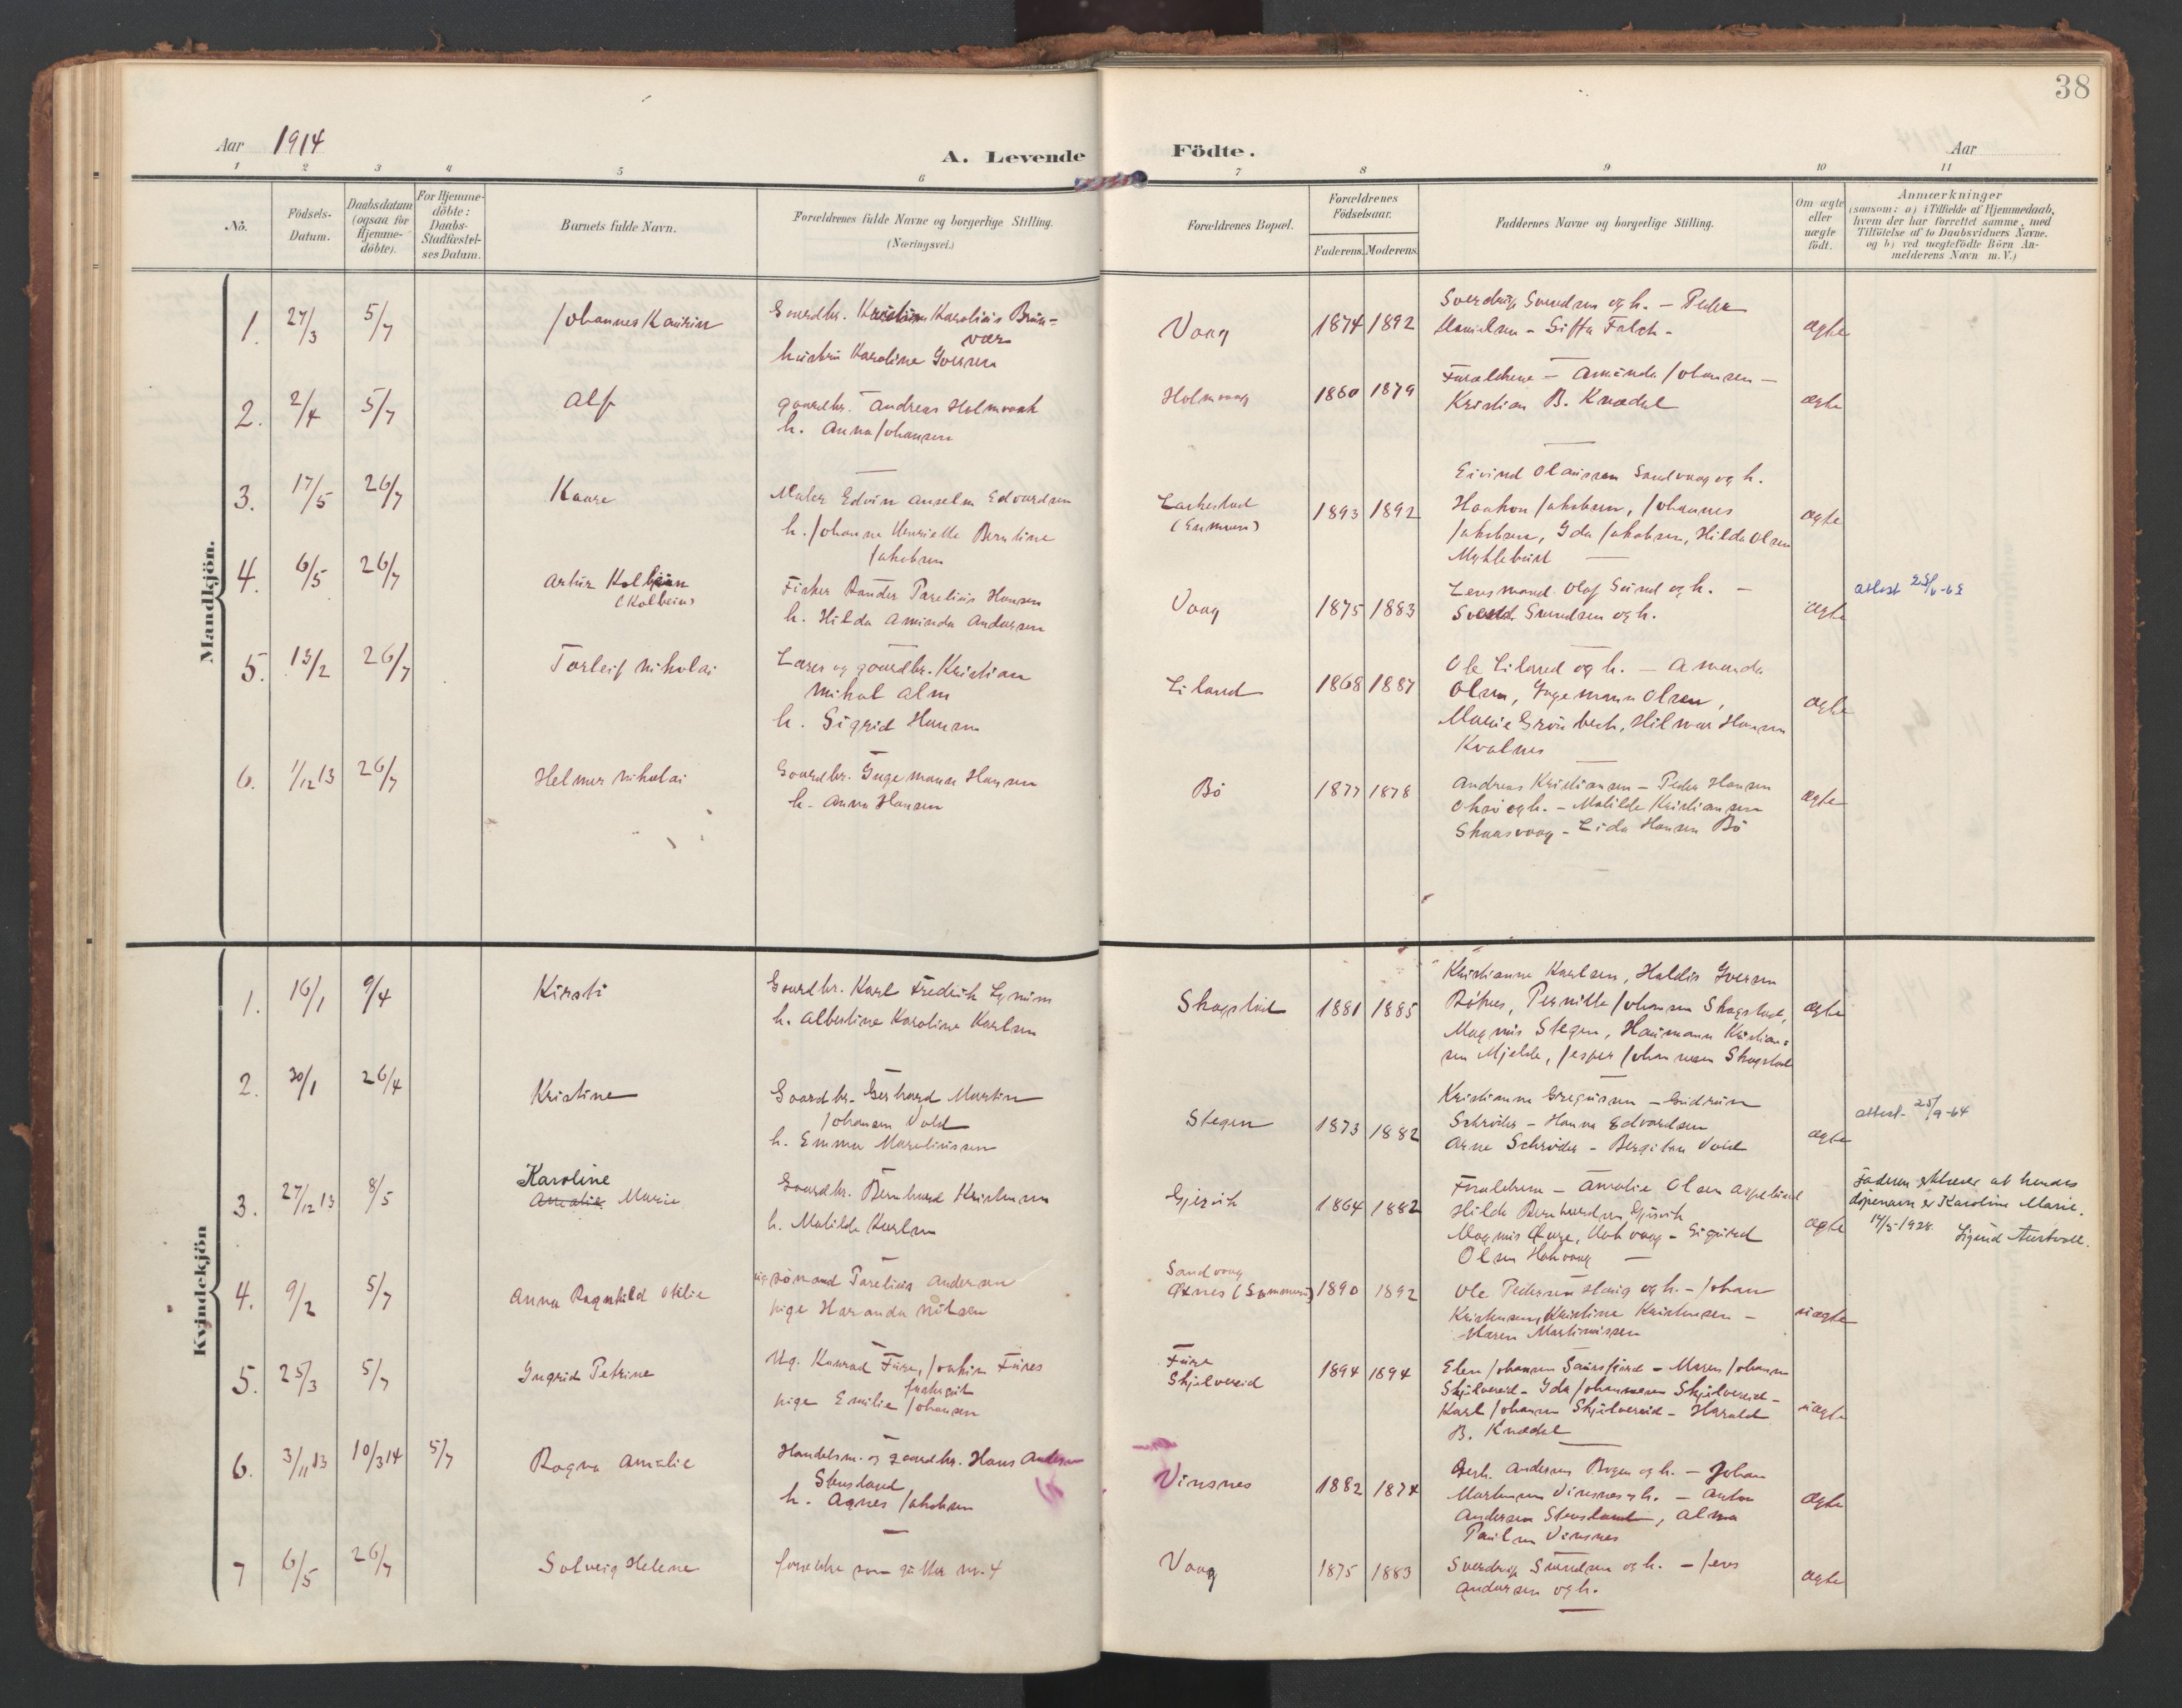 38
Aar 1914
A. Levende Födte.
Aar
1 2 3 4 5 6 7 8 9 10 11
No.
Födsels-Datum.
Daabsdatum (ogsaa for Hjemme-döbte).
For Hjemme-döbte: Daabs-Stadfæstel-ses Datum.
Barnets fulde Navn.
Forældrenes fulde Navne og borgerlige Stilling.
(Næringsvei.)
Forældrenes Bopæl.
Forældrenes Födselsaar.
Faderens. Moderens.
Faddernes Navne og borgerlige Stilling.
Om ægte eller uægte födt.
Anmærkninger
(saasom: a) i Tilfælde af Hjemmedaab,
hvem der har forrettet samme, med
Tilföielse af to Daabsvidners Navne.
og b) ved uægtefödte Börn An-
melderens Navn m. V.)
Mandkjön.
1. 27/3 5/7 Johannes Kaurin
Gaardbr. Karolius Brun-
vær
hustru Karoline Iversen
Vaag 1874 1892
Sverdrup Svendsen og h. – Peder
Danielsen – Falch – ægte
2. 2/4 5/7 Alf
gaardbr. Andreas Holmvaak
h. Anna Johansen
Holmvaag 1880 1879
Forældrene – Amanda Johansen –
Kristian B. Knædal ægte
3. 17/5 26/7 Kaare
Maler Edvin Anselm Edvardsen
h. Johanna Henriette Berntine
Jakobsen
1893 1892
Eivind Olaussen Sandvaag og h.
Haakon Jakobsen, Johannes
Jakobsen, Ida Jakobsen, Hilda Olsen
Myklebust ægte
4. 6/5 26/7 Artur Kolbein
(Kolbein)
Fisker Parelius Hansen
h. Hilda Aminda Andersen
Vaag 1875 1883
Lensmand Olaf Sund og h. –
Svendsen og h. ægte
attest
5. 13/2 26/7 Torleif Nikolai
Lærer og gaardbr. Kristian
Nikol Alm
h. Sigrid Hansen
Liland 1868 1887
Ole Liland og h. – Amanda
Olsen, Ingemann Olsen,
Marie Grönbech, Hilmar Hansen
Kvalnes ægte
6. 1/12 13 26/7 Helmer Nikolai
Gaardbr. Ingemann Hansen
h. Anna Hansen
Bö 1877 1878
Andreas Kristiansen – Peder Hansen
og h. – Matilde Kristiansen
Skaasvaag – Lida Hansen Bö ægte
Kvindekjön
1. 16/1 9/4 Kirsti
Gaardbr. Karl Fredrik
h. Albertine Karoline Karlsen
Skagstad 1881 1885
Kristianne Karlsen, Haldis Iversen
Pernille Johansen Skagstad,
Magnus Stegen, Haumann Kristian-
sen Mjelde, Jesper Johannesen Skagstad ægte
2. 30/1 26/4 Kristine
Gaardbr. Gerhard Martin
Johansen Vold
h. Emma Mareliussen
Stegen 1873 1882
Kristianna Gregusen – Gudrun
Schröder – Hanna Edvardsen
Arne Schröder – Bergitha Vold ægte
attest 25/9-64
3. 27/12 13 8/5 Karoline
Amalie Marie
Gaardbr. Bernhard Kristensen
h. Matilde Karlsen
Gjersvik 1864 1882
Forældrene – Amalie Olsen
Hilda Bernhardsen Gjersvik
Magnus – Sigurd
Olsen ægte
Faderen erklærer at hendes
döpenavn er Karoline Marie.
14/5-1928. Sigurd
4. 9/2 5/7 Anna Ragnhild Otilie
Parelius Andersen
pige Haranda Nilsen
Sandvaag
1890 1892
Ole Pedersen og h. – Johan
Kristensen, Kristine Kristensen –
Maren Martinussen uægte
5. 25/3 5/7 Ingrid Petrine
Ug. Konrad Furre, Joakim Fures
pige Emilie Johansen
Fure
Skjelvereid 1894 1894
Elen Johansen – Maren Johansen
Skjelvereid – Ida Johannesen Skjelvereid –
Karl Johansen Skjelvereid – Harald
B. Knædal uægte
6. 3/11 13 10/3 14 5/7 Ragna Amalie
Handelsm. og gaardbr. Hans Andersen
Stensland
h. Agnes Jakobsen
Vinsnes 1882 1874
Andersen Bogen og h. – Johan
Martinsen Vinsnes og h. – Anton
Andersen Stensland, Alma
Paulsen Vinsnes ægte
7 6/5 26/7 Solveig Helene
forældre som gutter nr. 4
Vaag 1875 1883
Sverdrup Svendsen og h. – Jens
Andersen og h. ægte